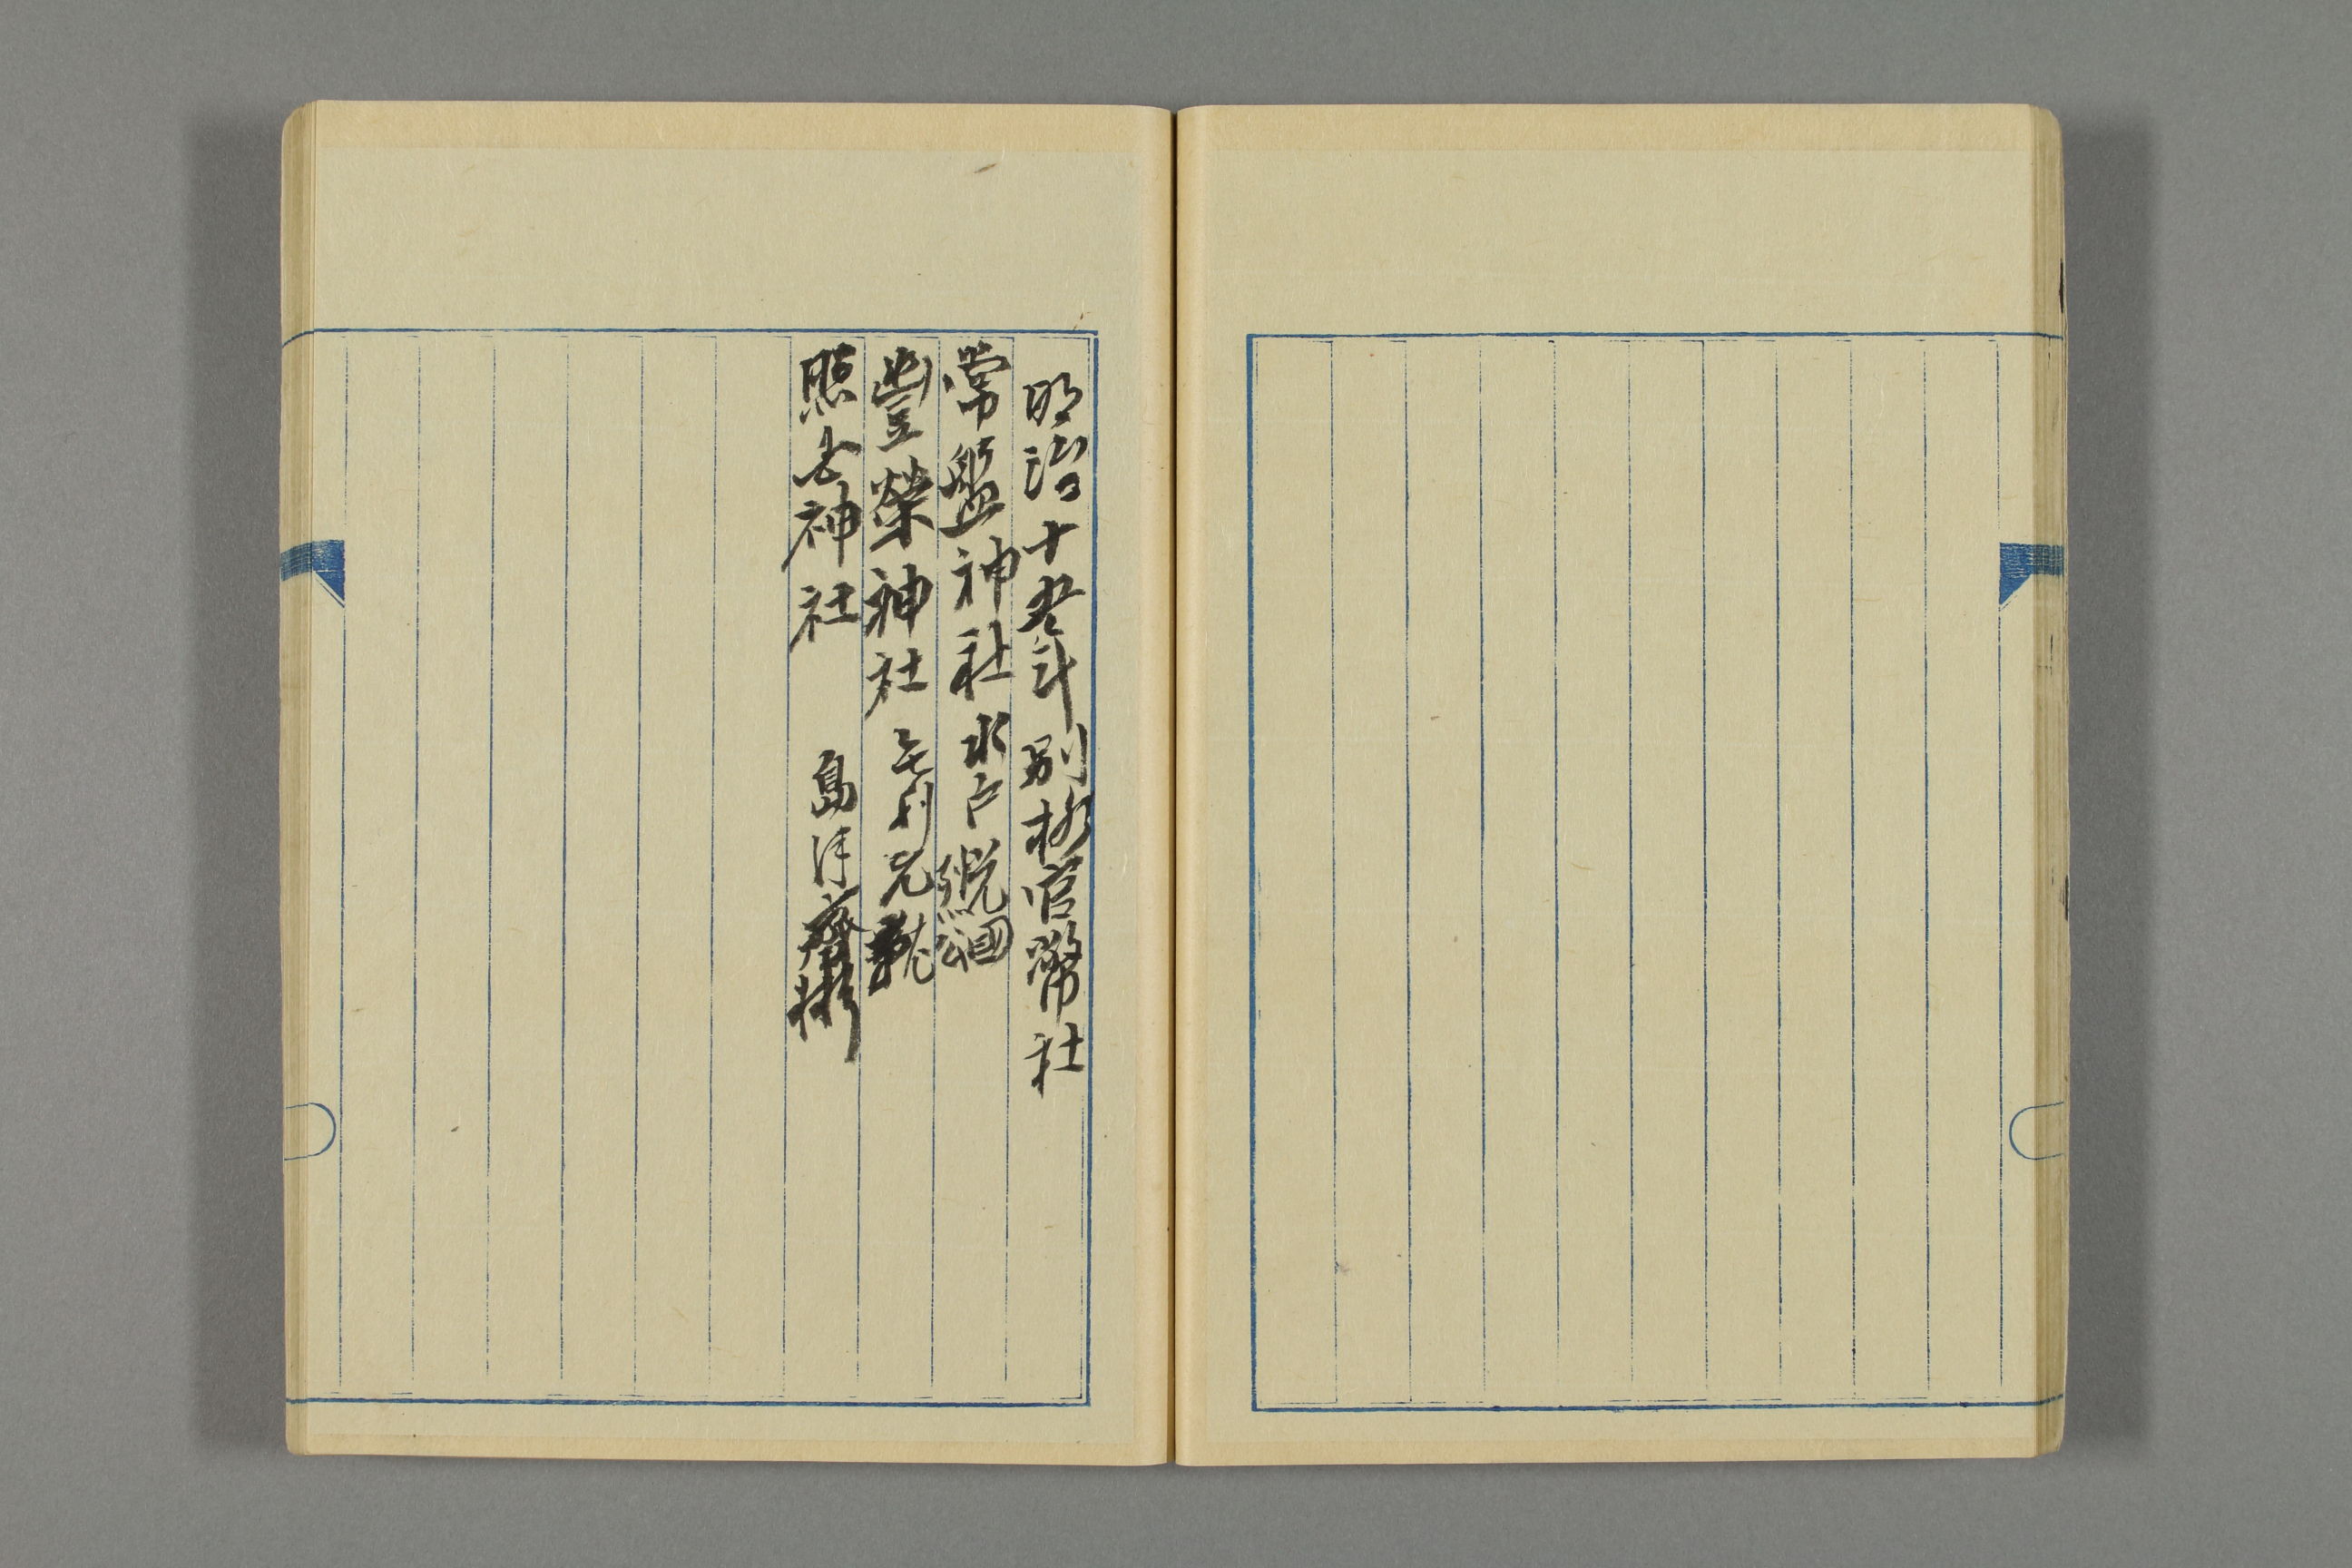 明治十五年別格官幣社
常盤神社 水戸 光圀 烈公
豐榮神社 毛利元就
照国神社 島津齊彬